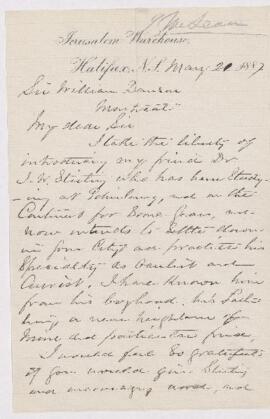 Jerusalem Warehouse,
Halifax, N.S. May 20 1887
Sir William Dawson
Montreal.
My dear Sir
I take the liberty of
introducing my friend Dr.
J. W. Stirling who has been study-
ing at Edinburg, and on the
Continent for some years, and
now intends to settle down
in your City and practice his
Speciality as Oculist and
Aurist. I have known him
from his boyhood, his father
being a near neighbour for
mine and particular friend.
I would feel so grateful
if you would give Stirling
an encouraging word, and